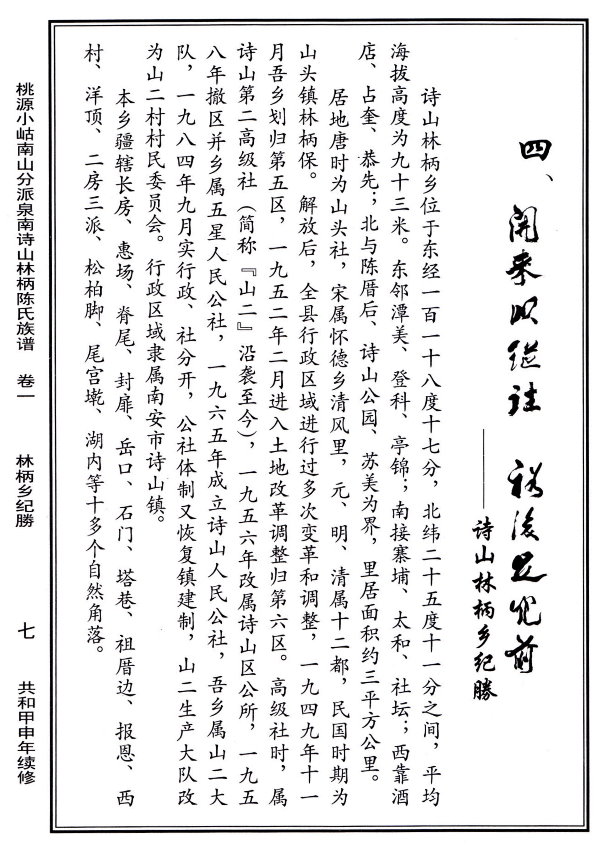 四、开来以继往 裕后足光前
——诗山林柄乡纪勝
诗山林柄乡位于东经一百一十八度十七分，北纬二十五度十一分之间，平均
海拔高度为九十三米。东邻潭美、登科、亭锦；南接寨埔、太和、社坛；西靠酒
店、占奎、恭先；北与陈厝后、诗山公园、苏美为界，里居面积约三平方公里。
居地唐时为山头社，宋属怀德乡清风里，元、明、清属十二都，民国时期为
山头镇林柄保。解放后，全县行政区域进行过多次变革和调整，一九四九年十一
月吾乡划归第五区，一九五二年二月进入土地改革调整归第六区。高级社时，属
诗山第二高级社（简称『山二』沿袭至今），一九五六年改属诗山区公所，一九五
八年撤区并乡属五星人民公社，一九六五年成立诗山人民公社，吾乡属山二大
队，一九八四年九月实行政、社分开，公社体制又恢复镇建制，山二生产大队改
为山二村村民委员会。行政区域隶属南安市诗山镇。
本乡疆辖长房、惠场、脊尾、封扉、岳口、石门、塔巷、祖厝边、报恩、西
村、洋顶、二房三派、松柏脚、尾宫墘、湖内等十多个自然角落。
桃源小岵南山分派泉南诗山林柄陈氏族谱 卷一 林柄乡纪勝 七 共和甲申年续修